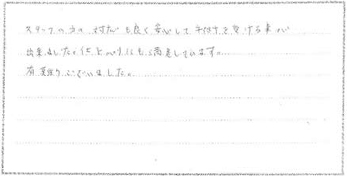 スタッフの方の対応も良く安心して手術を受ける事が
出来ました。仕上がりにも満足しています。
有難うございました。